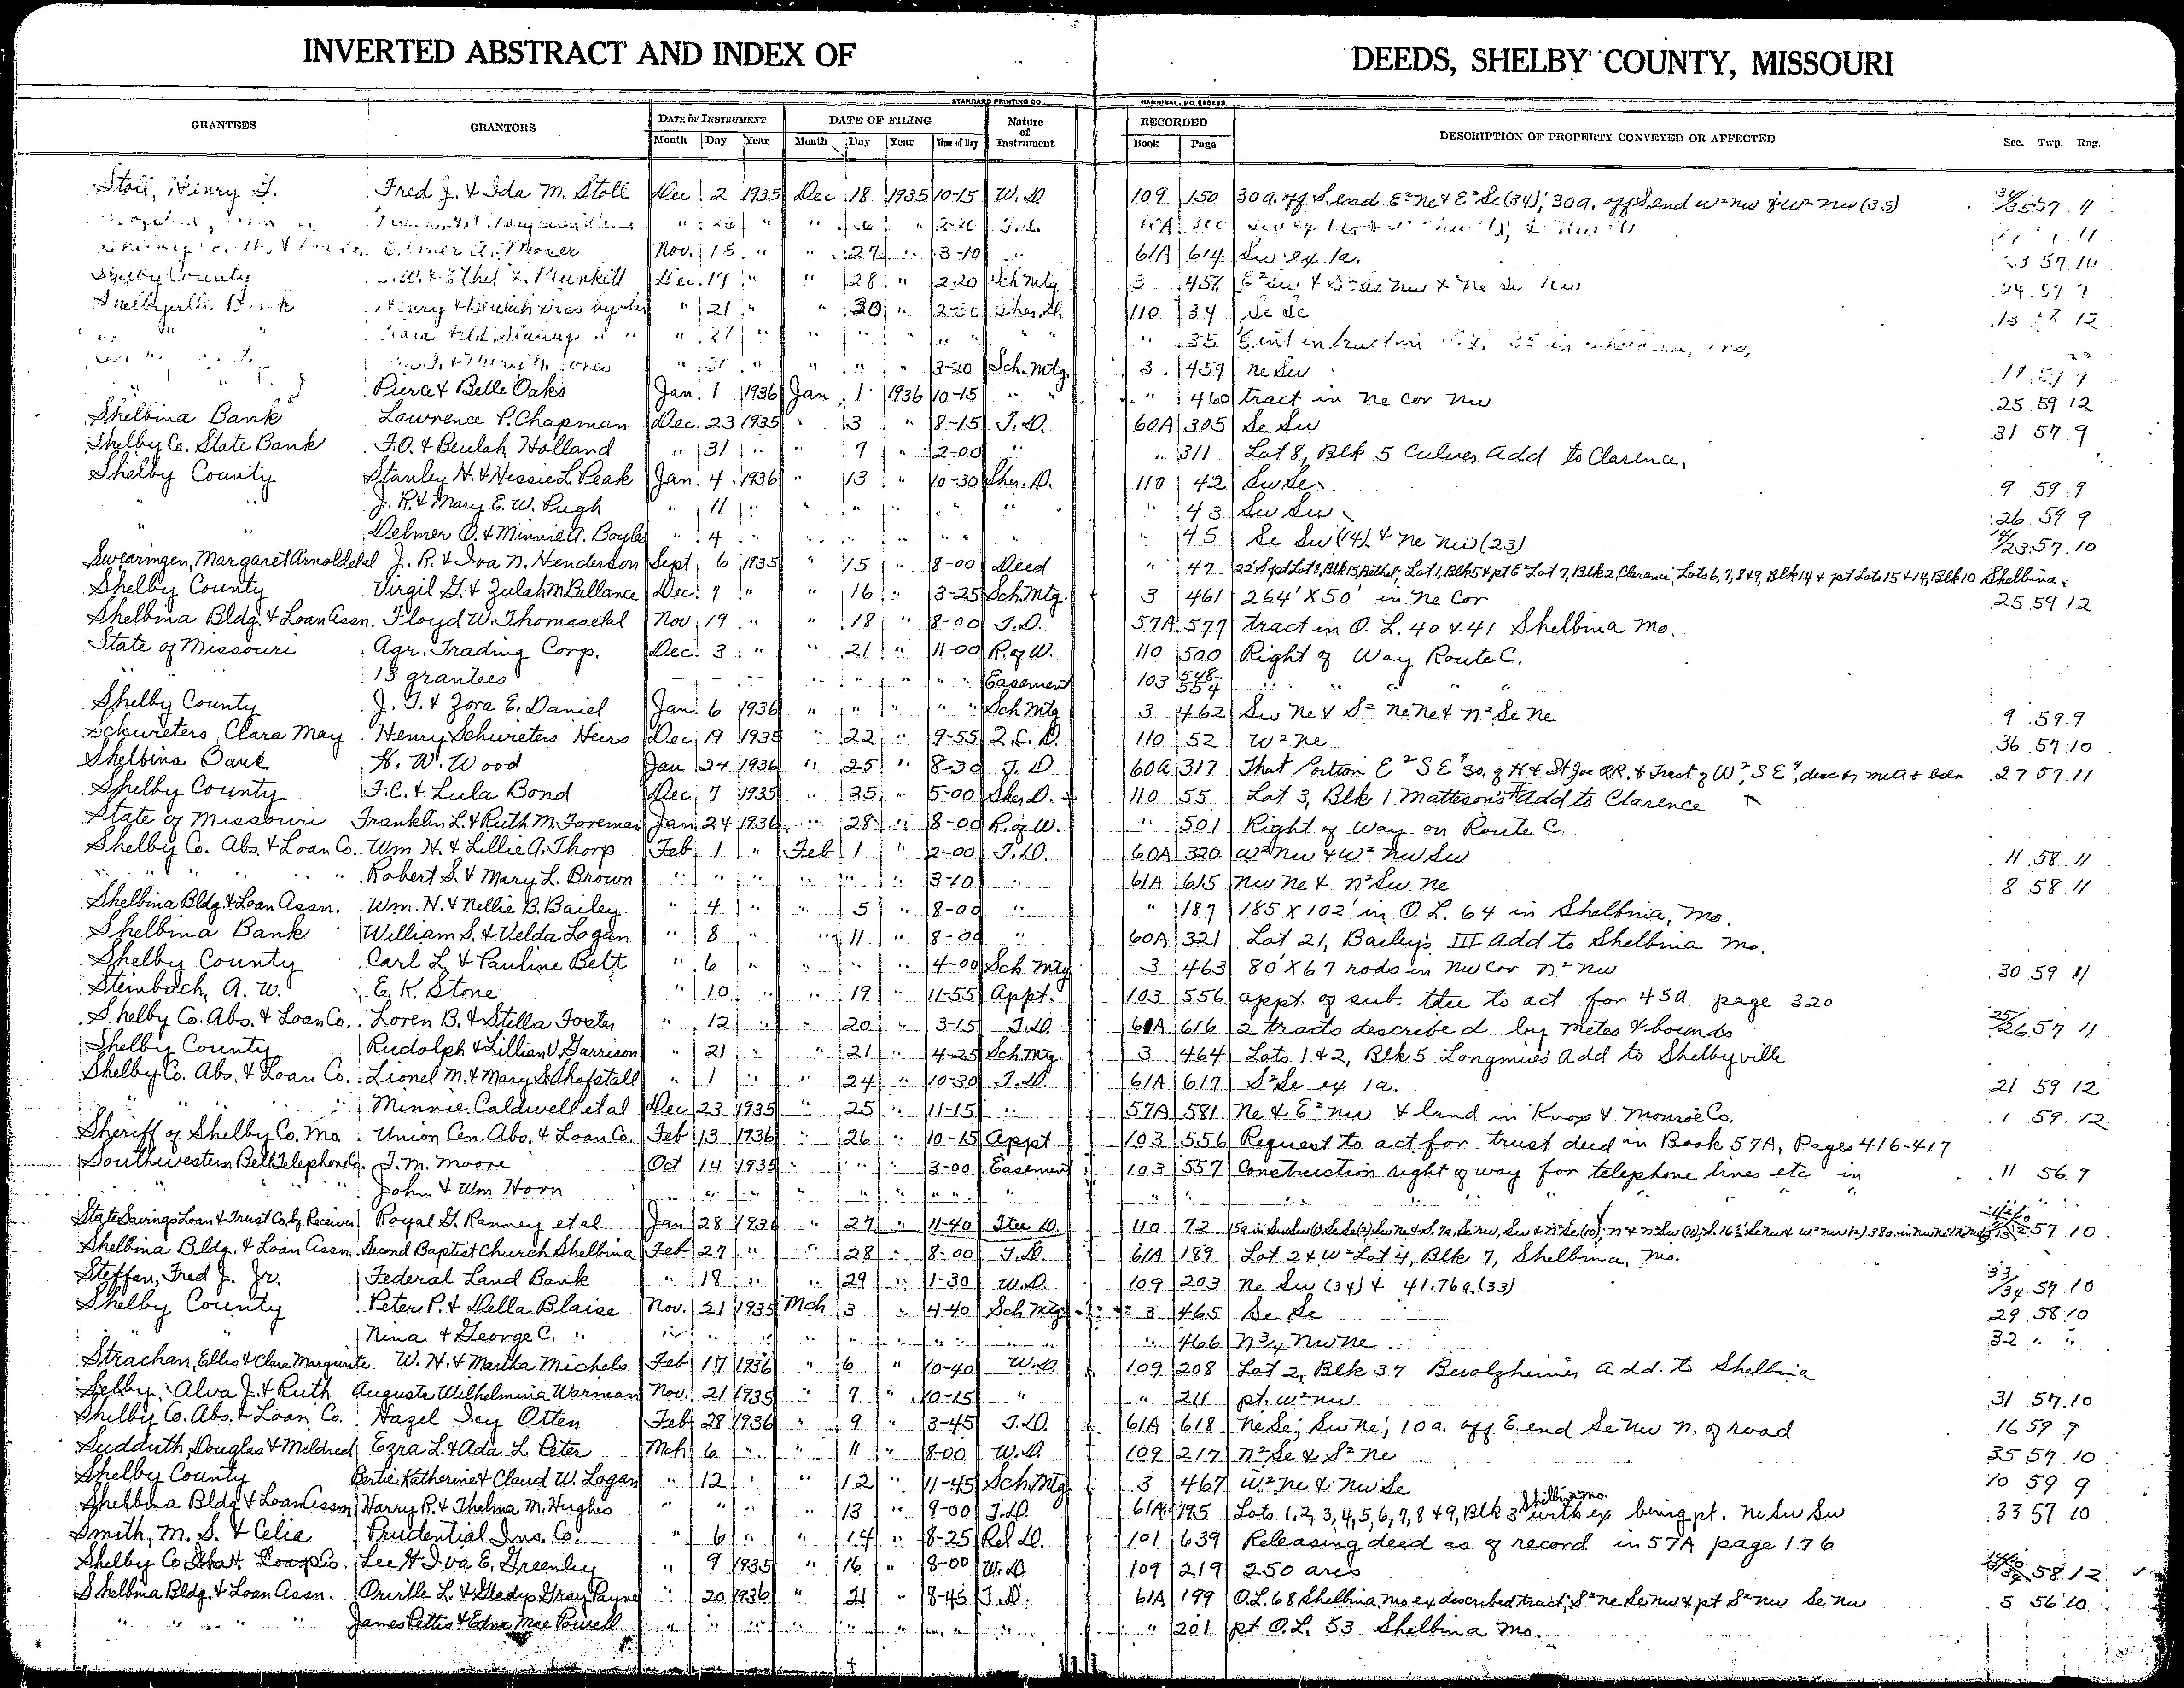 INVERTED ABSTRACT AND INDEX OF DEEDS, SHELBY COUNTY, MISSOURI
STANDARD PRINTING CO. HANNIBAL, MO.
GRANTEES GRANTORS DATE OF INSTRUMENT DATE OF FILING Nature of Instrument RECORDED DESCRIPTION OF PROPERTY CONVEYED OR AFFECTED Sec. Twp. Rng.
Month Day Year Month Day Year Time of Day Book Page
Stoll, Henry F. Fred J. & Ida M. Stoll Dec 2 1935 Dec 18 1935 10-15 W.D. 109 150 30a. off S. end E² Ne & E² Se (34); 30a. off S. end W² Nw & W² Nw (35) 34/35 57 11
Elmer A. Moser Nov. 15 " " 27 " 3-10 " 61A 614 Sw ex 1a. 23 57 10
Shelby County & Ethel Z. Plunkett Dec 17 " " 28 " 2-20 Sch Mtg 3 457 E² Sw & S² Se Nw & Ne Se Nw 24 59 9
Shelbyville Bank Henry & Beulah " 21 " " 30 " Sher. D. 110 34 Se Se 13 58 12
" " " 21 " " " " " " " 35
" 30 " " " " 3-20 Sch. Mtg. 3 459 Ne Sw
" " Pierce & Belle Oaks Jan 1 1936 Jan 1 1936 10-15 " " " 460 tract in Ne cor Nw 25 59 12
Shelbina Bank Lawrence P. Chapman Dec 23 1935 " 3 " 8-15 T.D. 60A 305 Se Sw 31 57 9
Shelby Co. State Bank F.O. & Beulah Holland " 31 " " 7 " 2-00 " " 311 Lot 8, Blk 5 Culver Add to Clarence.
Shelby County Stanley H. & Hessie L. Peak Jan. 4 1936 " 13 " 10-30 Sher. D. 110 42 Sw Se 9 59 9
" " J. R. & Mary E. W. Pugh " 11 " " " " " " " 43 Sw Sw 26 59 9
" " Delmer O. & Minnie A. Boyle " 4 " " " " " " " 45 Se Sw (14) & Ne Nw (23) 14/23 57 10
Swearingen, Margaret Arnold et al J. R. & Iva N. Henderson Sept 6 1935 " 15 " 8-00 Deed " 47 22' S pt Lot 8, Blk 15, Bethel; Lot 1, Blk 5 & pt E² Lot 7, Blk 2, Clarence; Lots 6, 7, 8 & 9, Blk 14 & pt Lots 15 & 14, Blk 10 Shelbina.
Shelby County Virgil G. & Zulah M. Bellance Dec. 7 " " 16 " 3-25 Sch. Mtg. 3 461 264' X 50' in Ne Cor 25 59 12
Shelbina Bldg. & Loan Assn. Floyd W. Thomas et al Nov 19 " " 18 " 8-00 T.D. 57A 577 tract in O. L. 40 & 41 Shelbina Mo.
State of Missouri Agr. Trading Corp. Dec 3 " " 21 " 11-00 R. of W. 110 500 Right of Way Route C.
" 13 grantees - - - " " " " " Easement 103 548-554 " " " "
Shelby County J. T. & Zora E. Daniel Jan. 6 1936 " " " " " Sch Mtg 3 462 Sw Ne & S² Ne Ne & N² Se Ne 9 59 9
Schwieters, Clara May Henry Schwieters Heirs Dec 19 1935 " 22 " 9-55 Q.C.D. 110 52 W² Ne 36 57 10
Shelbina Bank H. W. Wood Jan 24 1936 " 25 " 8-30 T.D. 60A 317 That Portion E² SE⁴ so. of H & St Joe RR. & Tract of W², SE⁴, desc by mets & bdn 27 57 11
Shelby County F.C. & Lula Bond Dec. 7 1935 " 25 " 5-00 Sher D. 110 55 Lot 3, Blk 1 Matteson's Add to Clarence
State of Missouri Franklin L. & Ruth M. Foreman Jan 24 1936 " 28 " 8-00 R. of W. " 501 Right of Way on Route C.
Shelby Co. Abs. & Loan Co. Wm H. & Lillie A. Thorp Feb 1 " Feb 1 " 2-00 T.D. 60A 320 W² Nw & W² Nw Sw 11 58 11
" " " " Robert S. & Mary L. Brown " " " " " " 3-10 " 61A 615 Nw Ne & N² Sw Ne 8 58 11
Shelbina Bldg. & Loan Assn. Wm. H. & Nellie B. Bailey " 4 " " 5 " 8-00 " " 187 185 X 102' in O.L. 64 in Shelbina, Mo.
Shelbina Bank William S. & Velda Logan " 8 " " 11 " 8-00 " 60A 321 Lot 21, Bailey's III Add to Shelbina Mo.
Shelby County Carl L. & Pauline Bett " 6 " " " " 4-00 Sch. Mtg 3 463 80' X 67 rods in Nw Cor N² Nw 30 59 11
Steinbach, A. W. E. K. Stone " 10 " " 19 " 11-55 Appt. 103 556 appt. of sub. ttee to act for 45A page 320
Shelby Co. Abs. & Loan Co. Loren B. & Stella Foster " 12 " " 20 " 3-15 T.D. 61A 616 2 tracts described by metes & bounds 25/26 57 11
Shelby County Rudolph & Lillian V. Garrison " 21 " " 21 " 4-25 Sch. Mtg. 3 464 Lots 1 & 2, Blk 5 Longmires Add to Shelbyville
Shelby Co. Abs. & Loan Co. Lionel M. & Mary S. Shofstall " 1 " " 24 " 10-30 T.D. 61A 617 S² Se ex 1a. 21 59 12
" " " " Minnie Caldwell et al Dec 23 1935 " 25 " 11-15 " 57A 581 Ne & E² Nw & land in Knox & Monroe Co. 1 59 12
Sheriff of Shelby Co. Mo. Union Cen. Abs. & Loan Co. Feb 13 1936 " 26 " 10-15 Appt 103 556 Request to act for trust deed in Book 57A, Pages 416-417
Southwestern Bell Telephone Co. T. M. Moore Oct 14 1935 " " " 3-00 Easement 103 557 Construction right of way for telephone lines etc in 11 56 9
" " " John & Wm Horn " " " " " " " " " " " " " " "
State Savings Loan & Trust Co. by Receiver Royal G. Ranney et al Jan 28 1936 " 27 " 11-40 Ttee D. 110 72 57 10
Shelbina Bldg. & Loan Assn. Second Baptist Church Shelbina Feb 27 " " 28 " 8-00 T.D. 61A 189 Lot 2 & W² Lot 4, Blk 7, Shelbina, Mo.
Steffan, Fred J. Jr. Federal Land Bank " 18 " " 29 " 1-30 W.D. 109 203 Ne Sw (34) & 41.76a. (33) 33/34 57 10
Shelby County Peter P. & Della Blaise Nov. 21 1935 Mch 3 " 4-40 Sch Mtg. 3 465 Se Se 29 58 10
Nina & George C. " " " " " " " " " " 466 N ¾ Nw Ne 32 " "
Strachan, Ellis & Clara Marguerite W. H. & Martha Michels Feb 17 1936 " 6 " 10-40 W.D. 109 208 Lot 2, Blk 37 Berolzheimer Add. to Shelbina
Selby, Alva J. & Ruth Augusta Wilhelmina Warman Nov. 21 1935 " 7 " 10-15 " " 211 pt. W² Nw. 31 57 10
Shelby Co. Abs. & Loan Co. Hazel Icy Otten Feb 28 1936 " 9 " 3-45 T.D. 61A 618 Ne Se; Sw Ne; 10a. off E. end Se Nw N. of road 16 59 9
Sudduth, Douglas & Mildred Ezra L. & Ada L. Peter Mch 6 " " 11 " 8-00 W.D. 109 217 N² Se & S² Ne 35 57 10
Shelby County Bertie Katherine & Claud W. Logan " 12 " " 12 " 11-45 Sch. Mtg 3 467 W² Ne & Nw Se 10 59 9
Shelbina Bldg & Loan Assn Harry R. & Thelma M. Hughes " " " " 13 " 9-00 T.D. 61A 195 Lots 1, 2, 3, 4, 5, 6, 7, 8 & 9, Blk 3 Shelbina Mo. with ex being pt. Ne Sw Sw 33 57 10
Smith, M. S. & Celia Prudential Ins. Co. " 6 " " 14 " 8-25 Rel D. 101 639 Releasing deed as of record in 57A page 176
Shelby Co Lee & Iva E. Greenley " 9 1935 " 16 " 8-00 W.D. 109 219 250 acres 58 12
Shelbina Bldg. & Loan Assn. Orville L. & Gladys Gray Payne " 20 1936 " 21 " 8-45 T.D. 61A 199 O.L. 68 Shelbina, Mo ex described tract; S² Ne Se Nw & pt S² Nw Se Nw 5 56 10
" " " " James Pettis & Edna Mae Powell " " " " " " " " " 201 pt O.L. 53 Shelbina Mo.